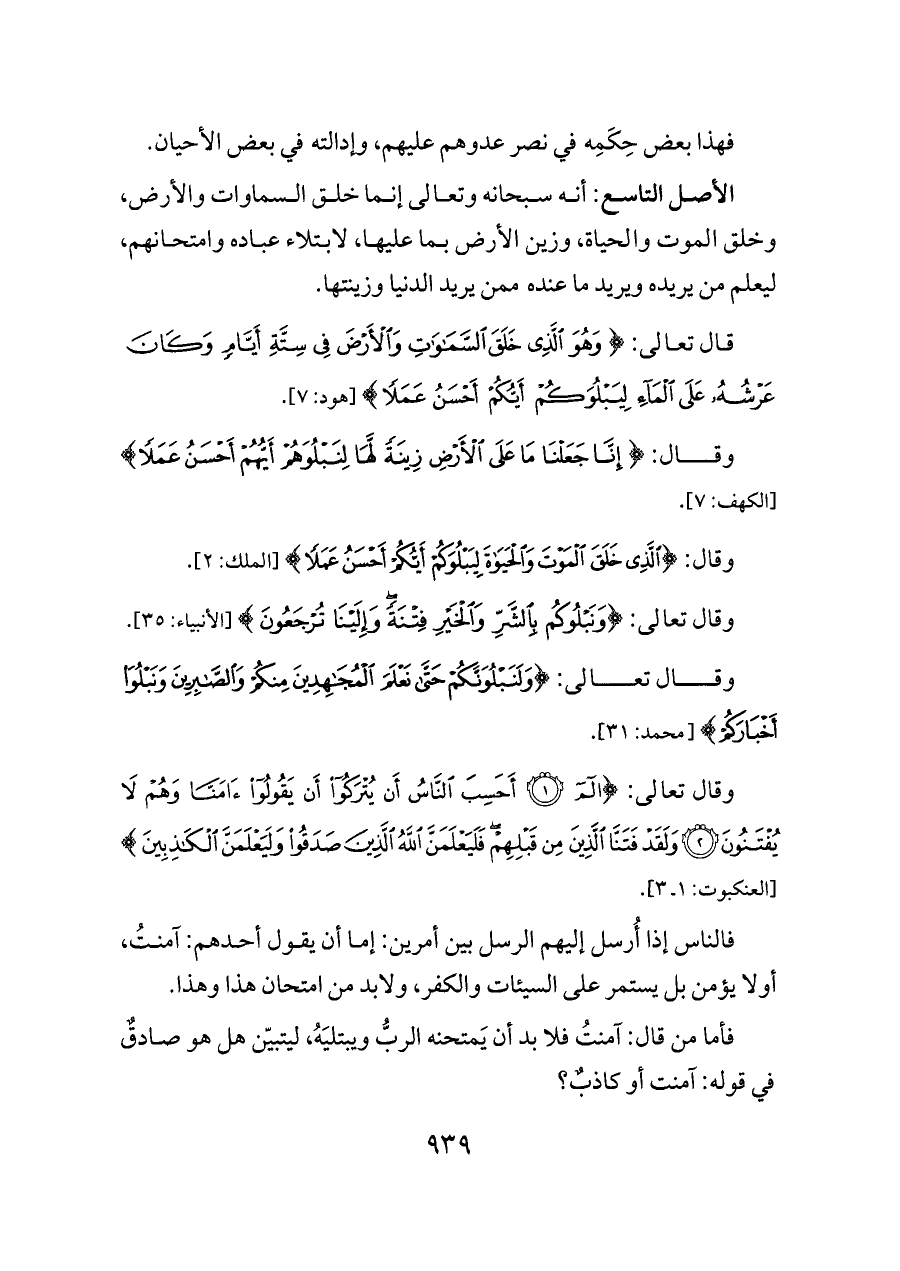 فهذا بعض حِكَمِه في نصر عدوهم عليهم، وإدالته في بعض الأحيان.
الأصل التاسع: أنه سبحانه وتعالى إنما خلق السماوات والأرض،
وخلق الموت والحياة، وزين الأرض بما عليها، لابتلاء عباده وامتحانهم،
ليعلم من يريده ويريد ما عنده ممن يريد الدنيا وزينتها.
قال تعالى: ﴿ وَهُوَ ٱلَّذِى خَلَقَ ٱلسَّمَٰوَٰتِ وَٱلْأَرْضَ فِى سِتَّةِ أَيَّامٍ وَكَانَ
عَرْشُهُۥ عَلَى ٱلْمَآءِ لِيَبْلُوَكُمْ أَيُّكُمْ أَحْسَنُ عَمَلًا ﴾ [هود: ٧].
وقال: ﴿ إِنَّا جَعَلْنَا مَا عَلَى ٱلْأَرْضِ زِينَةً لَّهَا لِنَبْلُوَهُمْ أَيُّهُمْ أَحْسَنُ عَمَلًا ﴾
[الكهف: ٧].
وقال: ﴿ٱلَّذِى خَلَقَ ٱلْمَوْتَ وَٱلْحَيَوٰةَ لِيَبْلُوَكُمْ أَيُّكُمْ أَحْسَنُ عَمَلًا ﴾ [الملك: ٢].
وقال تعالى: ﴿وَنَبْلُوكُم بِٱلشَّرِّ وَٱلْخَيْرِ فِتْنَةً ۖ وَإِلَيْنَا تُرْجَعُونَ ﴾ [الأنبياء: ٣٥].
وقال تعالى: ﴿وَلَنَبْلُوَنَّكُمْ حَتَّىٰ نَعْلَمَ ٱلْمُجَٰهِدِينَ مِنكُمْ وَٱلصَّٰبِرِينَ وَنَبْلُوَا۟
أَخْبَارَكُمْ ﴾ [محمد: ٣١].
وقال تعالى: ﴿الٓمٓ ١ أَحَسِبَ ٱلنَّاسُ أَن يُتْرَكُوٓا۟ أَن يَقُولُوٓا۟ ءَامَنَّا وَهُمْ لَا
يُفْتَنُونَ ٢ وَلَقَدْ فَتَنَّا ٱلَّذِينَ مِن قَبْلِهِمْ ۖ فَلَيَعْلَمَنَّ ٱللَّهُ ٱلَّذِينَ صَدَقُوا۟ وَلَيَعْلَمَنَّ ٱلْكَٰذِبِينَ ﴾
[العنكبوت: ١ـ٣].
فالناس إذا أُرسل إليهم الرسل بين أمرين: إما أن يقول أحدهم: آمنتُ،
أولا يؤمن بل يستمر على السيئات والكفر، ولابد من امتحان هذا وهذا.
فأما من قال: آمنتُ فلا بد أن يَمتحنه الربُّ ويبتليَهُ، ليتبيّن هل هو صادقٌ
في قوله: آمنت أو كاذبٌ؟
٩٣٩